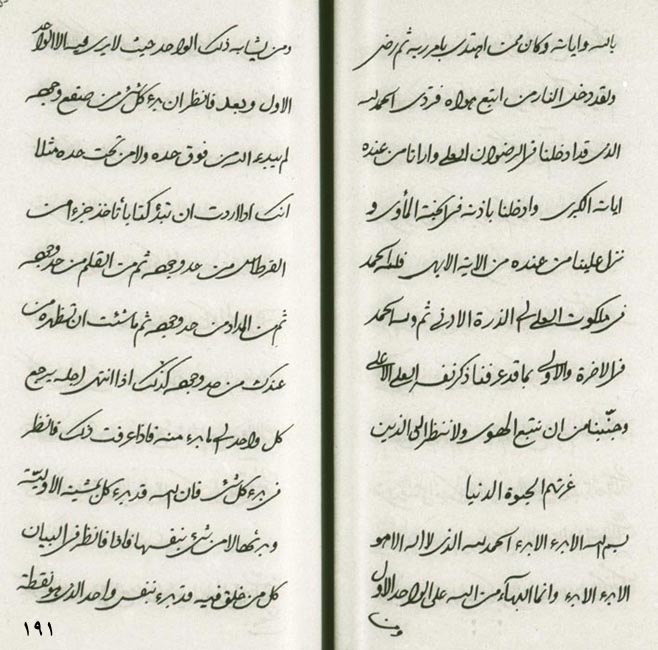 بالله واياته وكان ممن اهتدى بامر ربه ثم رضى
ولقد دخل النار من اتبع هواه فردى الحمد لله
الذى قد ادخلنا فى الرضوان العلى وارانا من عنده
اياته الكبرى وادخلنا باذنه فى الجنة المأوى و
نزل علينا من عنده من الاية الابهى فله الحمد
فى ملكوت العلى الى الذرة الادنى ثم وله الحمد
فى الاخرة والاولى بما قد عرفنا ذكر نفسه العلى الاعلى
وجنّبنا من ان نتبع الهوى ولا ننظر الى الذين
غرتهم الحيوة الدنيا
بسم الله الابرء الابرء الحمد لله الذى لا اله الا هو
الابرء الابرء وانما البهاء من الله على الواحد الاول
ومن
ومن يشابه ذلك الواحد حيث لا يرى فيه الا الواحد
الاول وبعد فانظر ان برء كل شئ من صقع وجهه
لم يبدء الله من فوق حده ولا من تحت حده مثلا
انك اذا اردت ان تبرء كتابا تاخذ جزء من
القرطاس من حد وجهه ثم من القلم من حد وجهه
ثم من المداد من حد وجهه ثم ما شئت ان تظهره من
عندك من حد وجهه كذلك اذا انتهى اجله يرجع
كل واحد الى ما برء منه فاذا عرفت ذلك فانظر
فى برء كل شئ فان الله قد برء كل بمشية الاولية
وبرئها لا من شئ بنفسها فاذا فانظر فى البيان
كل من خلق فيه قد برء بنفس واحد الذى هو نقطة
١٩١